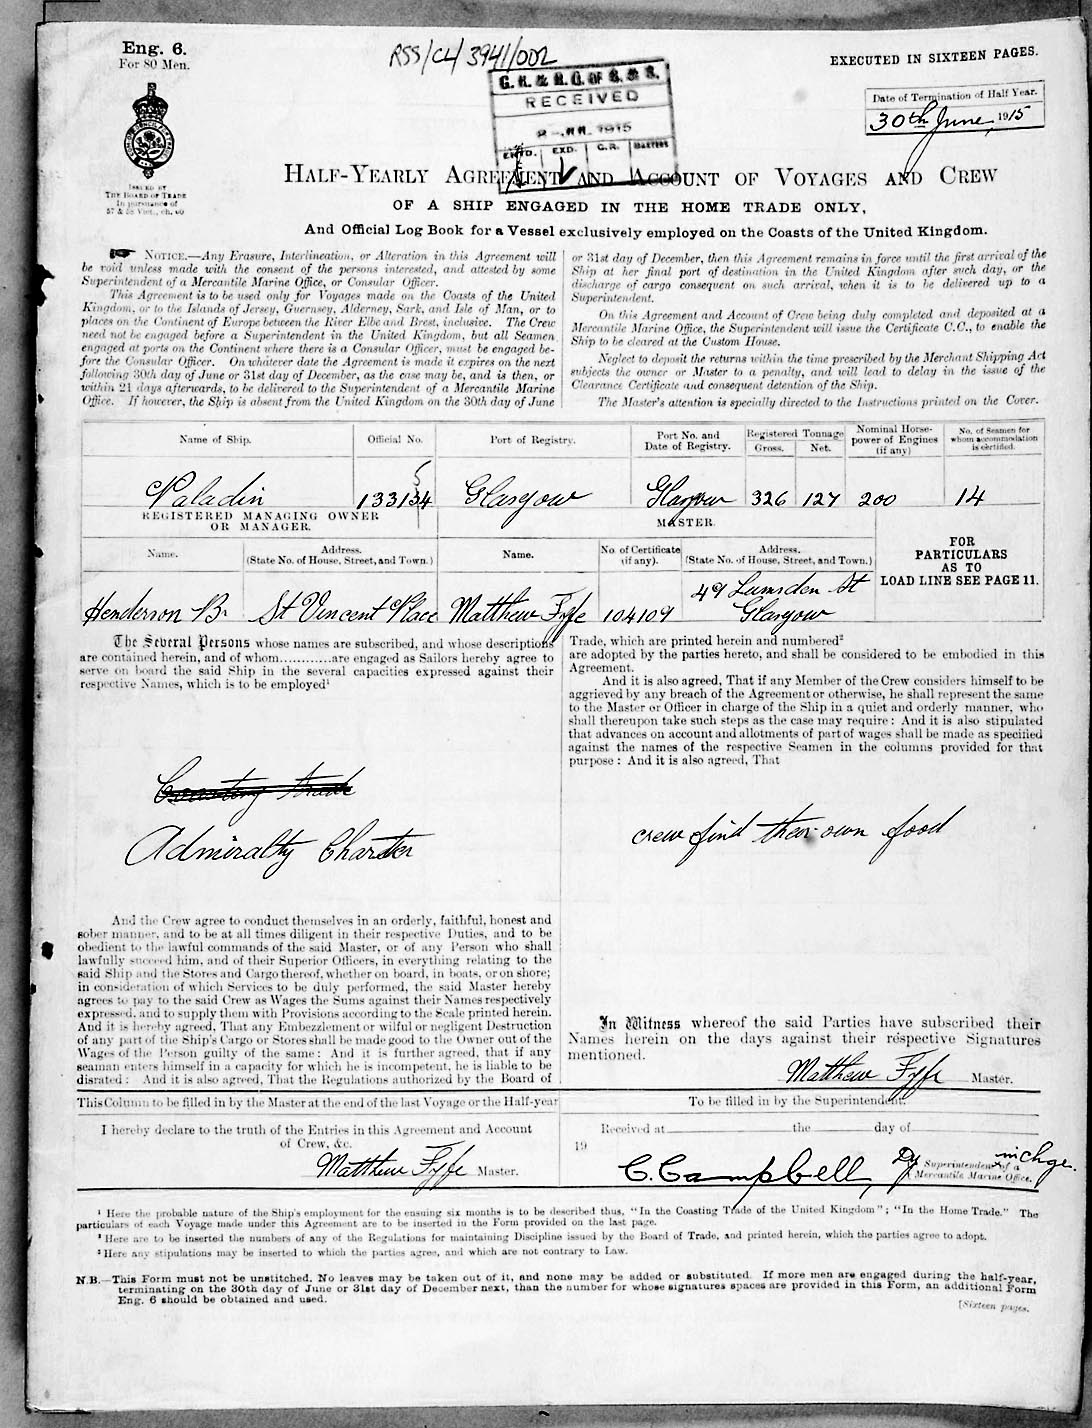 Eng. 6.
For 80 Men.
RSS/CL/3941/002
EXECUTED IN SIXTEEN PAGES.
RECEIVED
1915
ENTD. EXD. C.R. MASTERS
Date of Termination of Half Year.
30th June, 1915
ISSUED BY
THE BOARD OF TRADE
In pursuance of
57 & 58 Vict., ch. 60
HALF-YEARLY AGREEMENT AND ACCOUNT OF VOYAGES AND CREW
OF A SHIP ENGAGED IN THE HOME TRADE ONLY,
And Official Log Book for a Vessel exclusively employed on the Coasts of the United Kingdom.
NOTICE.—Any Erasure, Interlineation, or Alteration in this Agreement will
be void unless made with the consent of the persons interested, and attested by some
Superintendent of a Mercantile Marine Office, or Consular Officer.
This Agreement is to be used only for Voyages made on the Coasts of the United
Kingdom, or to the Islands of Jersey, Guernsey, Alderney, Sark, and Isle of Man, or to
places on the Continent of Europe between the River Elbe and Brest, inclusive. The Crew
need not be engaged before a Superintendent in the United Kingdom, but all Seamen
engaged at ports on the Continent where there is a Consular Officer, must be engaged be-
fore the Consular Officer. On whatever date the Agreement is made it expires on the next
following 30th day of June or 31st day of December, as the case may be, and is then, or
within 21 days afterwards, to be delivered to the Superintendent of a Mercantile Marine
Office. If however, the Ship is absent from the United Kingdom on the 30th day of June
or 31st day of December, then this Agreement remains in force until the first arrival of the
Ship at her final port of destination in the United Kingdom after such day, or the
discharge of cargo consequent on such arrival, when it is to be delivered up to a
Superintendent.
On this Agreement and Account of Crew being duly completed and deposited at a
Mercantile Marine Office, the Superintendent will issue the Certificate C.C., to enable the
Ship to be cleared at the Custom House.
Neglect to deposit the returns within the time prescribed by the Merchant Shipping Act
subjects the owner or Master to a penalty, and will lead to delay in the issue of the
Clearance Certificate and consequent detention of the Ship.
The Master's attention is specially directed to the Instructions printed on the Cover.
Name of Ship. Official No. Port of Registry. Port No. and Date of Registry. Registered Tonnage Gross. Net. Nominal Horse-power of Engines (if any) No. of Seamen for whom accommodation is certified.
Paladin 133134 5 Glasgow Glasgow 326 127 200 14
REGISTERED MANAGING OWNER
OR MANAGER.
MASTER.
Name. Address. (State No. of House, Street, and Town.) Name. No. of Certificate (if any). Address. (State No. of House, Street, and Town.)
FOR
PARTICULARS
AS TO
LOAD LINE SEE PAGE 11.
Henderson Br St Vincent Place Matthew Fyfe 104109 49 Lumsden St Glasgow
The Several Persons whose names are subscribed, and whose descriptions
are contained herein, and of whom............are engaged as Sailors hereby agree to
serve on board the said Ship in the several capacities expressed against their
respective Names, which is to be employed¹
Coasting trade
Admiralty Charter
And the Crew agree to conduct themselves in an orderly, faithful, honest and
sober manner, and to be at all times diligent in their respective Duties, and to be
obedient to the lawful commands of the said Master, or of any Person who shall
lawfully succeed him, and of their Superior Officers, in everything relating to the
said Ship and the Stores and Cargo thereof, whether on board, in boats, or on shore;
in consideration of which Services to be duly performed, the said Master hereby
agrees to pay to the said Crew as Wages the Sums against their Names respectively
expressed, and to supply them with Provisions according to the Scale printed herein.
And it is hereby agreed, That any Embezzlement or wilful or negligent Destruction
of any part of the Ship's Cargo or Stores shall be made good to the Owner out of the
Wages of the Person guilty of the same: And it is further agreed, that if any
seaman enters himself in a capacity for which he is incompetent, he is liable to be
disrated: And it is also agreed, That the Regulations authorized by the Board of
Trade, which are printed herein and numbered²
are adopted by the parties hereto, and shall be considered to be embodied in this
Agreement.
And it is also agreed, That if any Member of the Crew considers himself to be
aggrieved by any breach of the Agreement or otherwise, he shall represent the same
to the Master or Officer in charge of the Ship in a quiet and orderly manner, who
shall thereupon take such steps as the case may require: And it is also stipulated
that advances on account and allotments of part of wages shall be made as specified
against the names of the respective Seamen in the columns provided for that
purpose: And it is also agreed, That
crew find their own food
In Witness whereof the said Parties have subscribed their
Names herein on the days against their respective Signatures
mentioned.
Matthew Fyfe Master.
This Column to be filled in by the Master at the end of the last Voyage or the Half-year
I hereby declare to the truth of the Entries in this Agreement and Account
of Crew, &c.
Matthew Fyfe Master.
To be filled in by the Superintendent.
Received at the day of
19
C. Campbell, Dy Superintendent of a Mercantile Marine Office. in chge.
¹ Here the probable nature of the Ship's employment for the ensuing six months is to be described thus, "In the Coasting Trade of the United Kingdom"; "In the Home Trade." The
particulars of each Voyage made under this Agreement are to be inserted in the Form provided on the last page.
² Here are to be inserted the numbers of any of the Regulations for maintaining Discipline issued by the Board of Trade, and printed herein, which the parties agree to adopt.
³ Here any stipulations may be inserted to which the parties agree, and which are not contrary to Law.
N.B.—This Form must not be unstitched. No leaves may be taken out of it, and none may be added or substituted. If more men are engaged during the half-year,
terminating on the 30th day of June or 31st day of December next, than the number for whose signatures spaces are provided in this Form, an additional Form
Eng. 6 should be obtained and used.
[Sixteen pages.